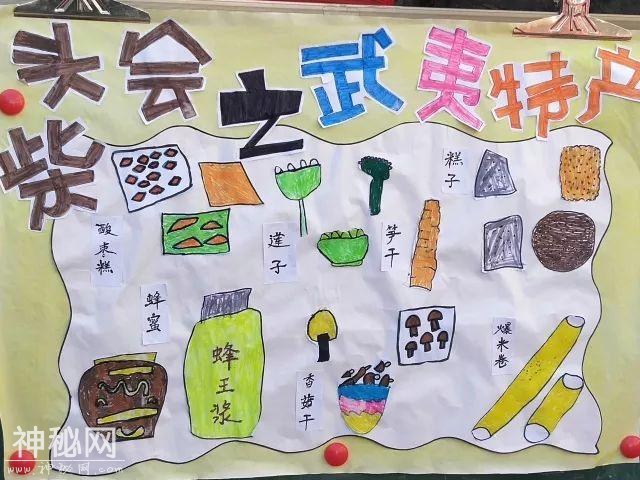 柴头会之武夷特产
糕子
酸枣糕
莲子
笋干
蜂蜜
蜂王浆
香菇干
爆米卷
神秘网